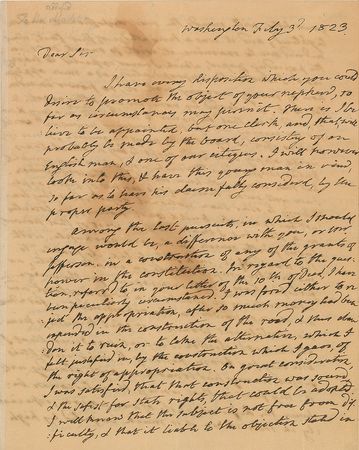 Washington Feby 3d 1823.
Dear Sir
I have every disposition which you could
desire to promote the object of your nephew, so
far as circumstances may permit. There is I be
lieve to be appointed, but one clerk, and that will
probably be made by the board, consisting of an
English man, & one of our citizens. I will however
look into this, & have this young man in view,
so far as to have his claim fully considerd, by the
proper party.
Among the last pursuits, in which I should
engage would be, a difference with you, or Mr.
Jefferson. in a construction of any of the grants of
power in the constitution. In regard to the ques
tion, referrd to in your letter of the 10th. of Decr, I have
been peculiarly circumstanced. I was forcd either to re
ject the appropriation, after so much money had been
expended in the construction of the road, & thus aban
don it to ruin, or to take the alternative, which I
felt justified in, by the construction which I gave, of
the right of appropriation. On great consideration,
I was satisfied that that construction was sound,
& the safest for State rights, that could be adopted.
I well know that the subject is not free from dif
ficulty, & that it liable to the objection stated in